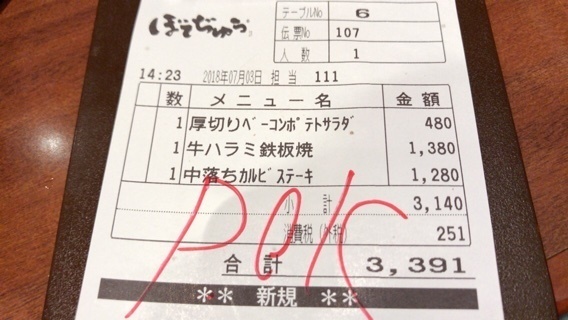 ぼてぢゅう
テーブルNo 6
伝票No 107
人数 1
14:23 2018年07月03日 担当 111
数 メニュー名 金額
1 厚切りﾍﾞｰｺﾝﾎﾟﾃﾄｻﾗﾀﾞ 480
1 牛ハラミ鉄板焼 1,380
1 中落ちｶﾙﾋﾞｽﾃｰｷ 1,280
小計 3,140
消費税(外税) 251
合計 3,391
** 新規 **